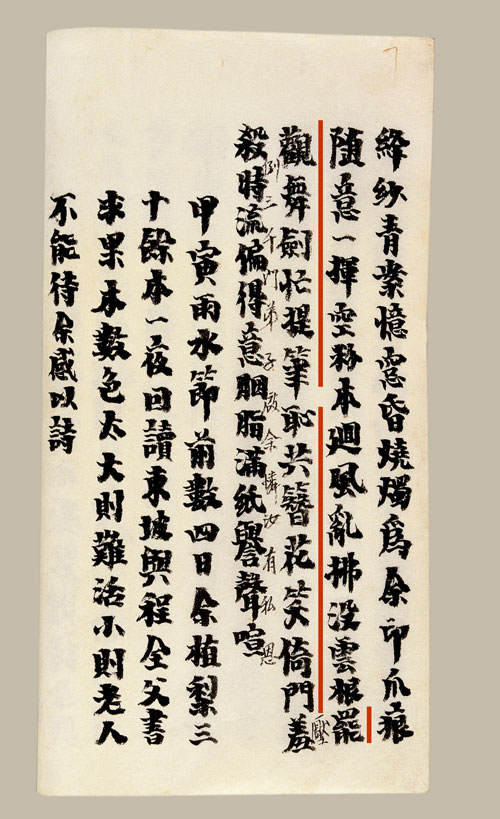 絳紗青案憶窓昏燒燭爲余印爪痕
随意一揮空粉本迴風亂拂没雲根罷
觀舞劍忙提筆恥共簪花笑倚門羞
壓
倒三千門弟子啟余憐汝有私恩
殺時流偏得意胭脂滿紙譽聲喧
甲寅雨水節前數四日余植梨三
十餘本一夜因讀東坡與程全父書
求果木數色太大則難活小則老人
不能待余感以詩